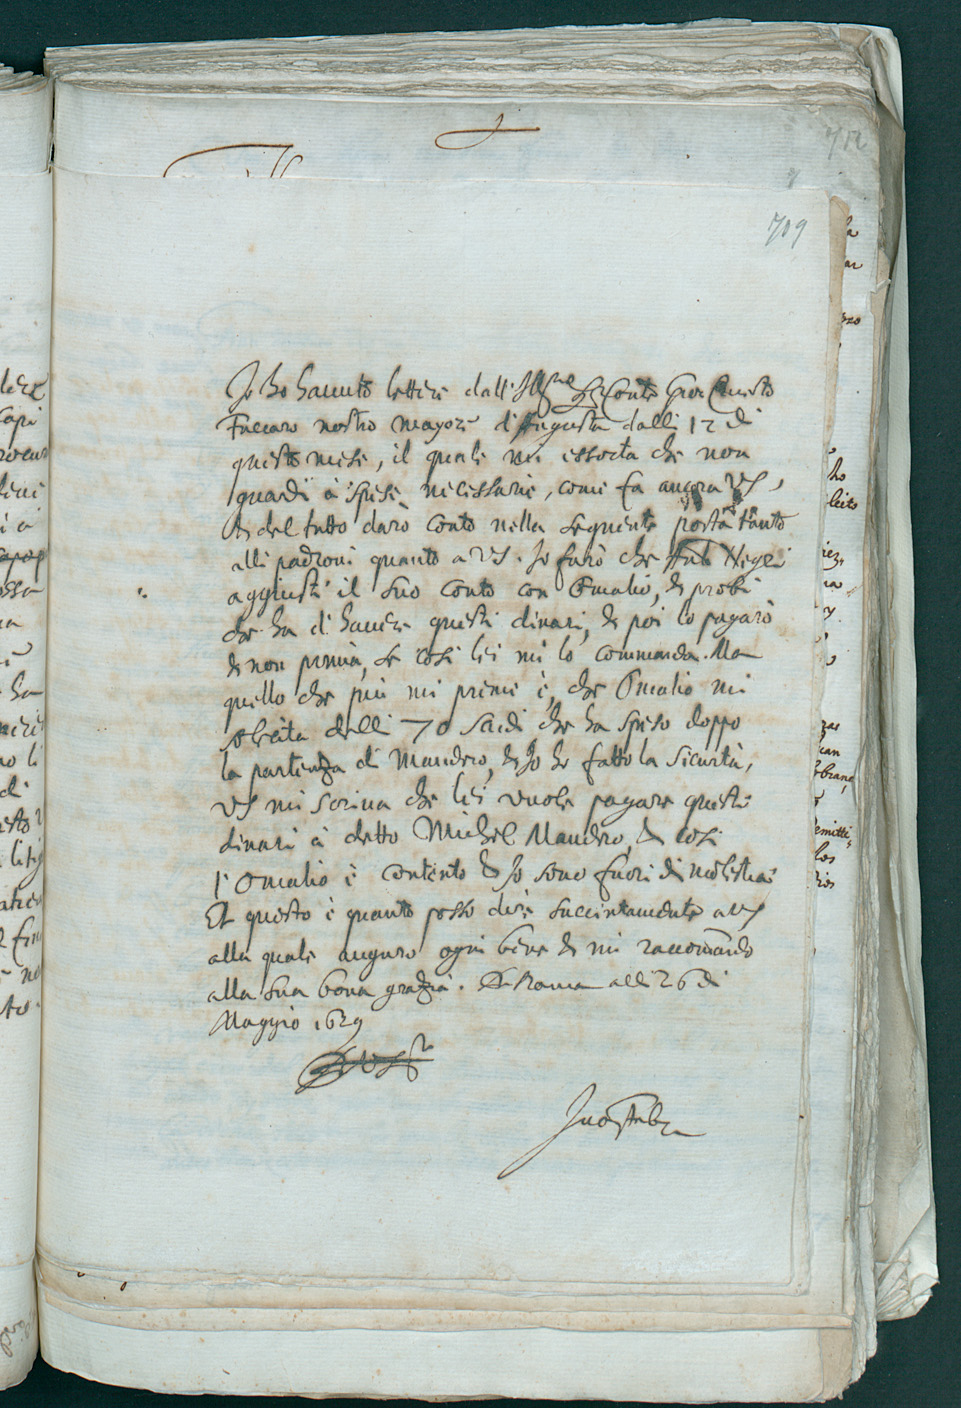 709
Jo ho havuto lettere dall' Ill.mo Sr Conte Gio: Ernesto
Fuccaro nostro magore d'Augusta dalli 12 di
questo mese, il quale mi essorta che non
guardi à spese necissarie, come fa ancora VS,
& del tutto darò conto nella seguente posta tanto
alli padroni quanto a VS. Jo farò che Negri
aggiusti il suo conto con Omalio, & probi
che ha di havere questi dinari, & poi lo pagarò
& non prima, se così lei mi lo commanda. Ma
quello che più mi preme è, che Omalio mi
solecita delli 70 scudi che ha speso doppo
la partenza di Mandero, & Jo ho fatto la sicurtà,
VS mi scriva che lei vuole pagare questi
dinari à detto Michel Mandero, & così
l'Omalio è contento & Jo sono fuori di molestia.
Et questo è quanto posso dire succintamente a VS
alla quale auguro ogni bene & mi raccomando
alla sua bona grazia. Da Roma alli 26 di
Maggio 1629